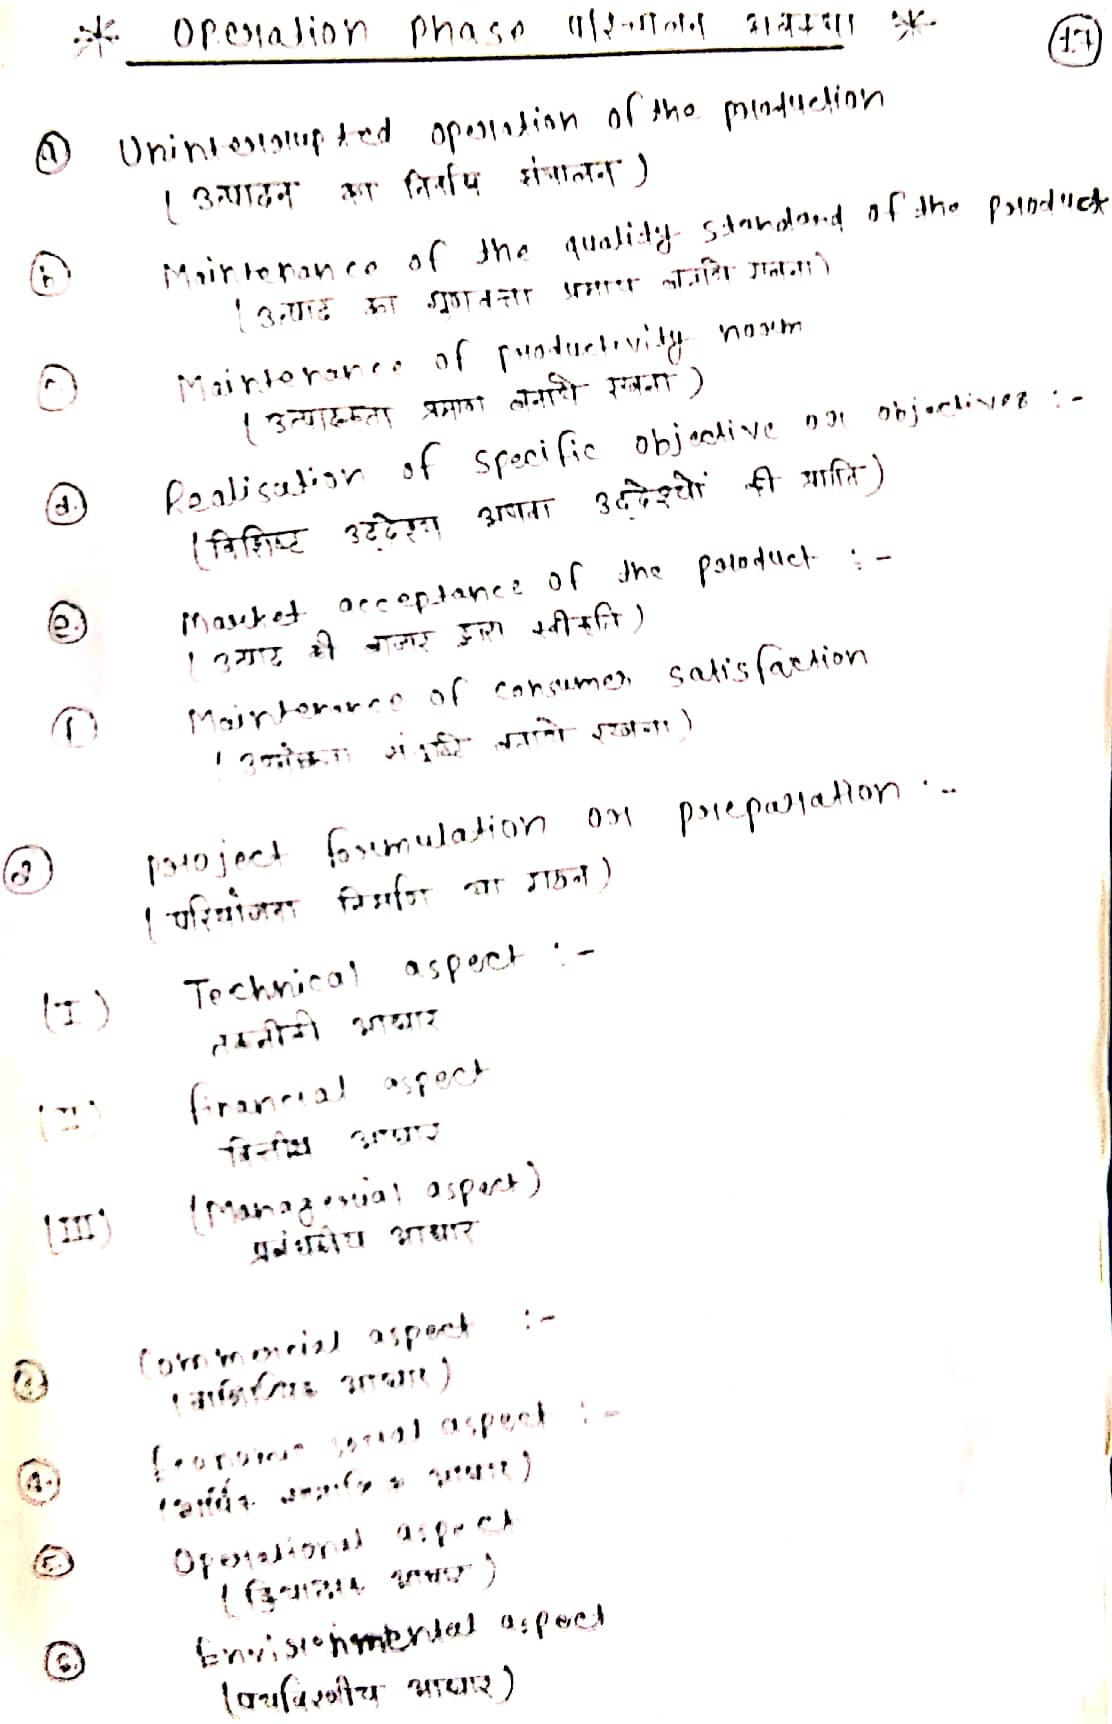 * Operation phase परिचालन अवस्था *
17
a Uninterrupted operation of the production
( उत्पादन का निर्वाध संचालन )
b Maintenance of the quality standard of the product
( उत्पाद का गुणवत्ता प्रमाप बनाये रखना )
c. Maintenance of productivity norm
( उत्पादकता प्रमाप बनाये रखना )
d. Realisation of specific objective or objectives :-
( विशिष्ट उद्देश्य अथवा उद्देश्यों की प्राप्ति )
e. Market acceptance of the product :-
( उत्पाद की बाजार द्वारा स्वीकृति )
f Maintenance of consumer satisfaction
( उपभोक्ता संतुष्टि बनाये रखना )
project formulation or preparation :-
( परियोजना निर्माण या गठन )
(I) Technical aspect :-
तकनीकी आधार
(II) financial aspect
वित्तीय आधार
(III) (Managerial aspect)
प्रबंधकीय आधार
Commercial aspect :-
( वाणिज्यिक आधार )
4. Economic social aspect :-
( आर्थिक सामाजिक आधार )
5. Operational aspect
( क्रियात्मक आधार )
6. Environmental aspect
( पर्यावरणीय आधार )